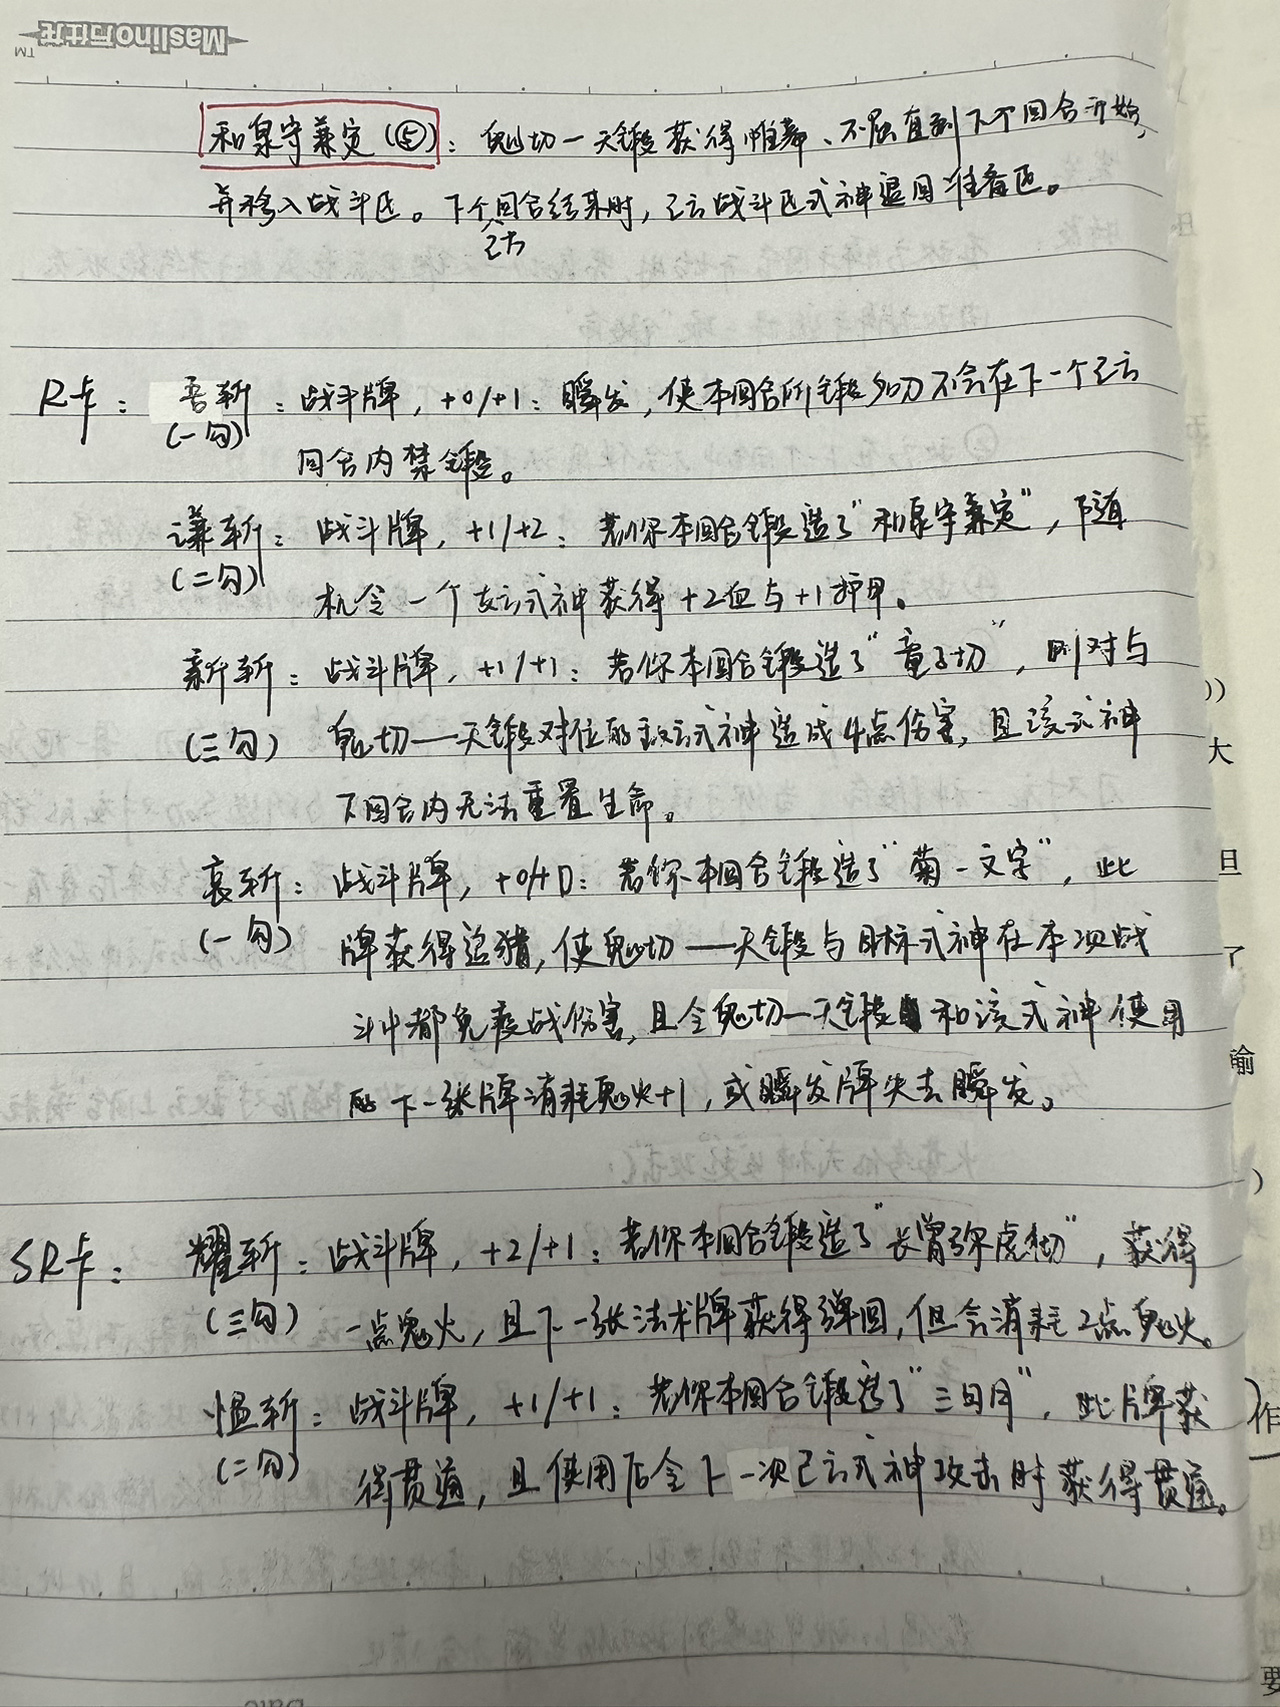 Maslino
TM
和泉守兼定(⑤):鬼切一天锻获得帷幕、不屈直到下个回合开始,
并移入战斗区。下个己方回合结束时,己方战斗区式神退回准备区。
R卡: 吾斩:战斗牌,+0/+1:瞬发,使本回合所锻名刀不会在下一个己方
(一勾) 回合内禁锻。
谦斩:战斗牌,+1/+2:若你本回合锻造了"和泉守兼定",随
(二勾) 机令一个友方式神获得+2血与+1护甲。
新斩:战斗牌,+1/+1:若你本回合锻造了"童子切",则对与
(三勾) 鬼切——天锻对位的敌方式神造成4点伤害,且该式神
下回合内无法重置生命。
哀斩:战斗牌,+0/+0:若你本回合锻造了"菊一文字",此
(一勾) 牌获得追猎,使鬼切——天锻与目标式神在本次战
斗中都免疫战伤害,且令鬼切一天锻和该式神使用
的下一张牌消耗鬼火+1,或瞬发牌失去瞬发。
SR卡: 耀斩:战斗牌,+2/+1:若你本回合锻造了"长曾弥虎彻",获得
(三勾) 一点鬼火,且下一张法术牌获得弹回,但会消耗2点鬼火。
愠斩:战斗牌,+1/+1:若你本回合锻造了"三日月",此牌获
(二勾) 得贯通,且使用后令下一次己方式神攻击时获得贯通。
大
且
了
输
作
电
要